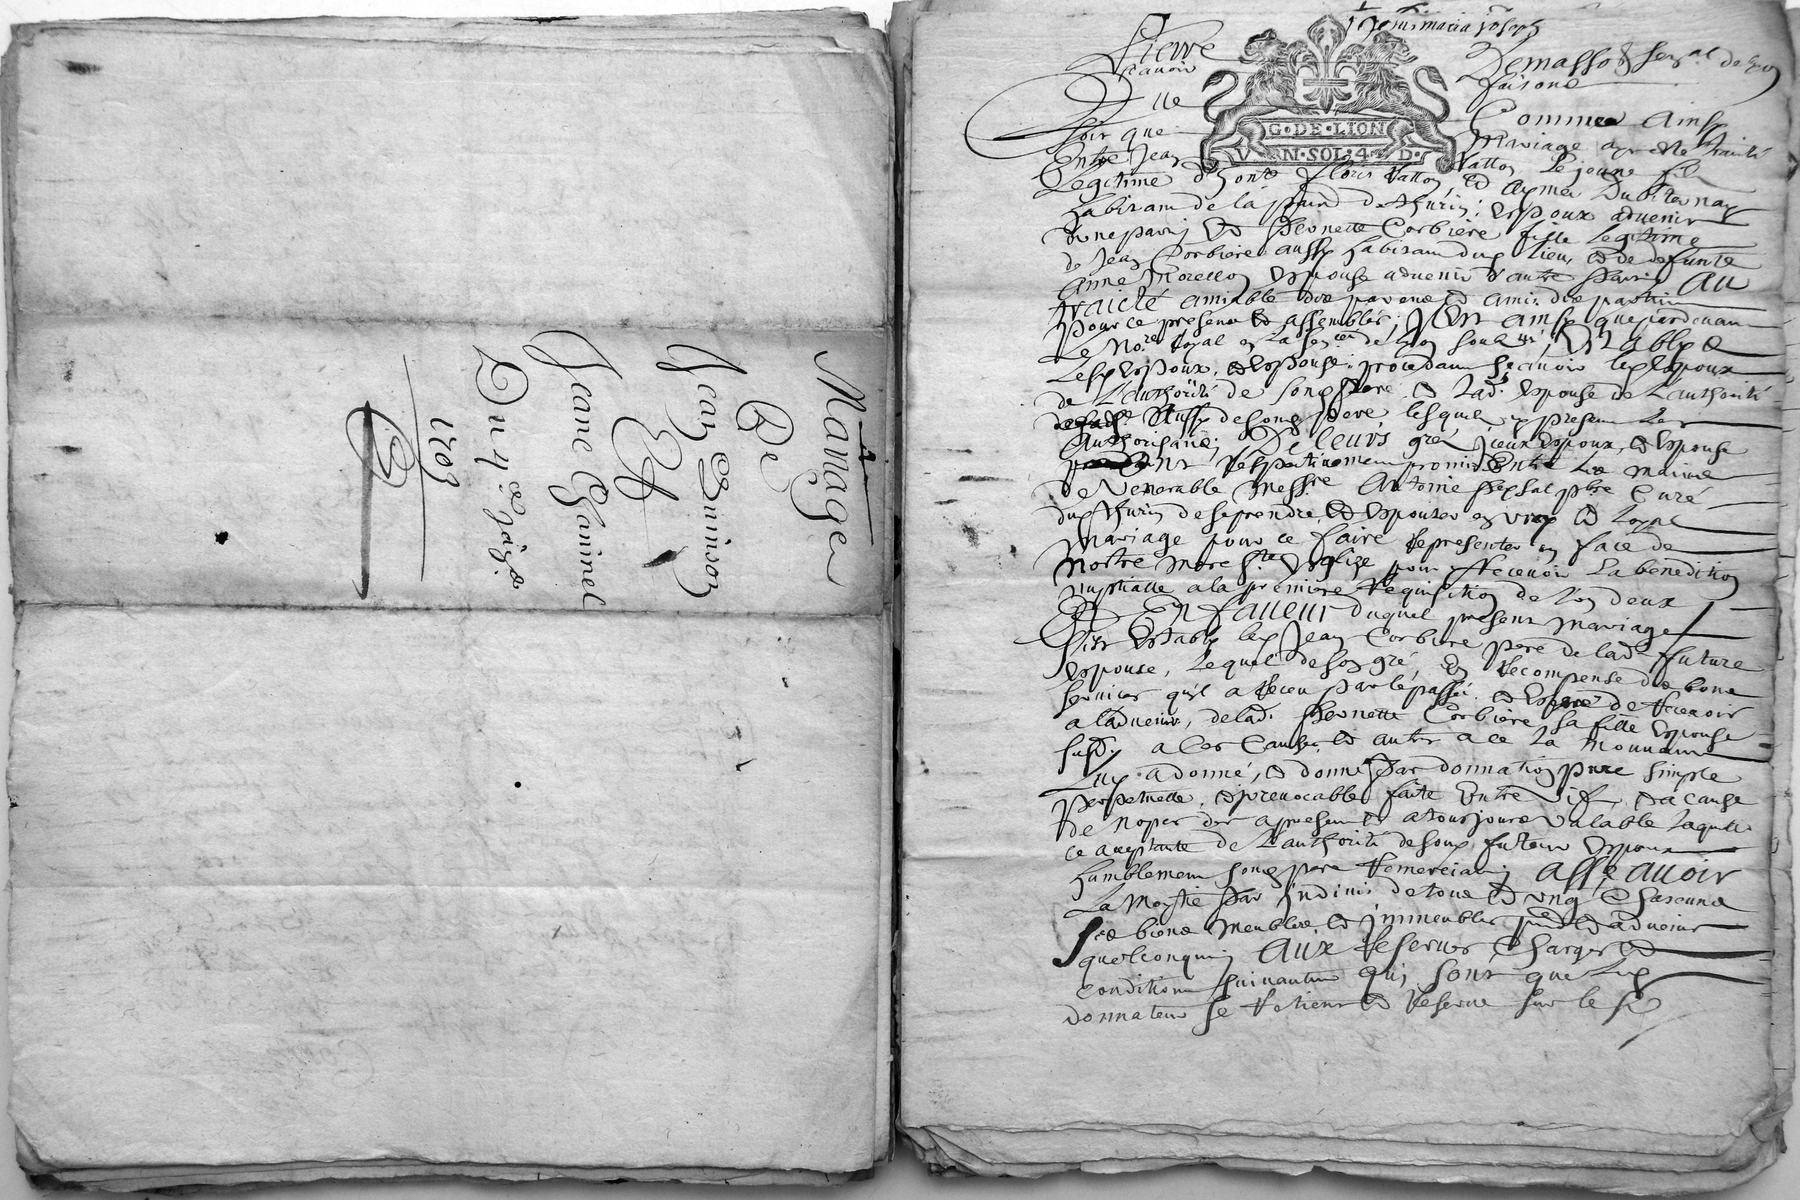 Mariage
De
Jean Buinson
Et
Jeane Ganinel
Du 4e
1703
Jesus maria Joseph
Pierre Demasso
sçavoir faisons
Que Comme ainsy
soit que mariage aye este traité
G·DE·LION
V N·SOL·4 D·
Entre Jean Vatton le jeune fils
Legitime d'honte Floris Vatton, et
habitant de la de Thurin; Espoux advenir
d'une part; et Pernette Corbiere fille legitime
de Jean Corbiere aussy habitant dud lieu, et de defunte
Anne Espouse advenir d'autre part; Au
traicté amiable des parens et amis des parties
pour ce present et assemblés; Est ainsy que pardevant
Le Nore Royal en la de Lyon soubzné,
Lesd Espoux, et Espouse; procedant sçavoir led Espoux
de l'authorité de son Pere et lad. Espouse de l'authorité
aussy de son pere lesquels present les
Authorisant; De leurs gré iceux Espoux, et Espouse
ont respectivement promis Entre les mains
de Venerable Messire Antoine pbre Curé
dud Thurin de se prendre, et Espouser en vray et loyal
mariage pour ce faire se presenter en face de
nostre mere Ste Eglize pour recevoir La benediction
nuptialle a la premiere requisition de l'un deux
Et En faveur duquel present mariage
s'est Estably led Jean Corbiere pere de lad. future
Espouse, lequel de son gré, En recompense des bons
services qu'il a receu par le passé, et Espere de recevoir
a l'advenir, de lad. Pernette Corbiere sa fille Espouse
susd. a ces Causes et autres a ce La mouvant
Luy a donné, et donne par donnation pure simple
perpetuelle, et irrevocable faite Entre vifs, et a cause
de nopces des a present et a tousjours valable laquelle
ce acceptante de l'authorité de son futeur Espoux
humblement son pere remerciant; Assçavoir
La moytié par indivis de tous et ung Chascuns
ses biens meubles, et immeubles et advenir
quelconques; Aux reserves, Charges et
Conditions suivantes qui sont que led
donnateur se retient et reserve sur le